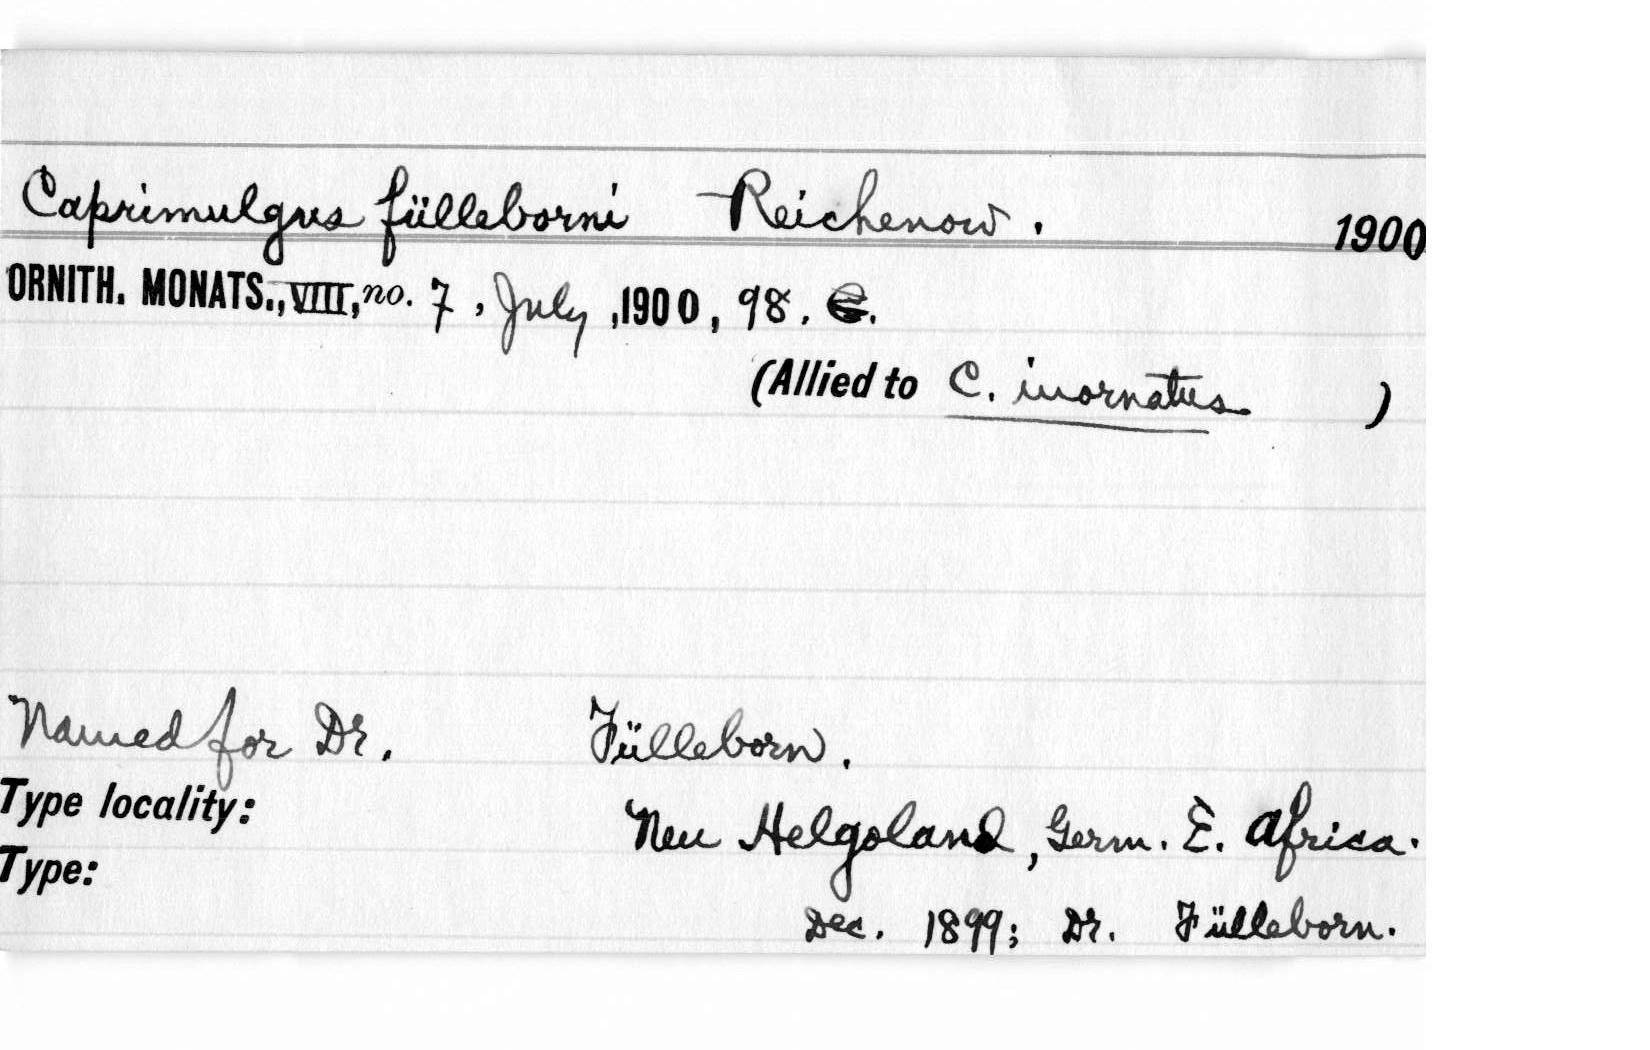 Caprimulgus fülleborni Reichenow. 1900
ORNITH. MONATS., VIII, no. 7, July, 1900, 98.
(Allied to C. inornatus )
Named for Dr. Fülleborn.
Type locality:
Neu Helgoland, Germ. E. Africa.
Type:
Dec. 1899; Dr. Fülleborn.